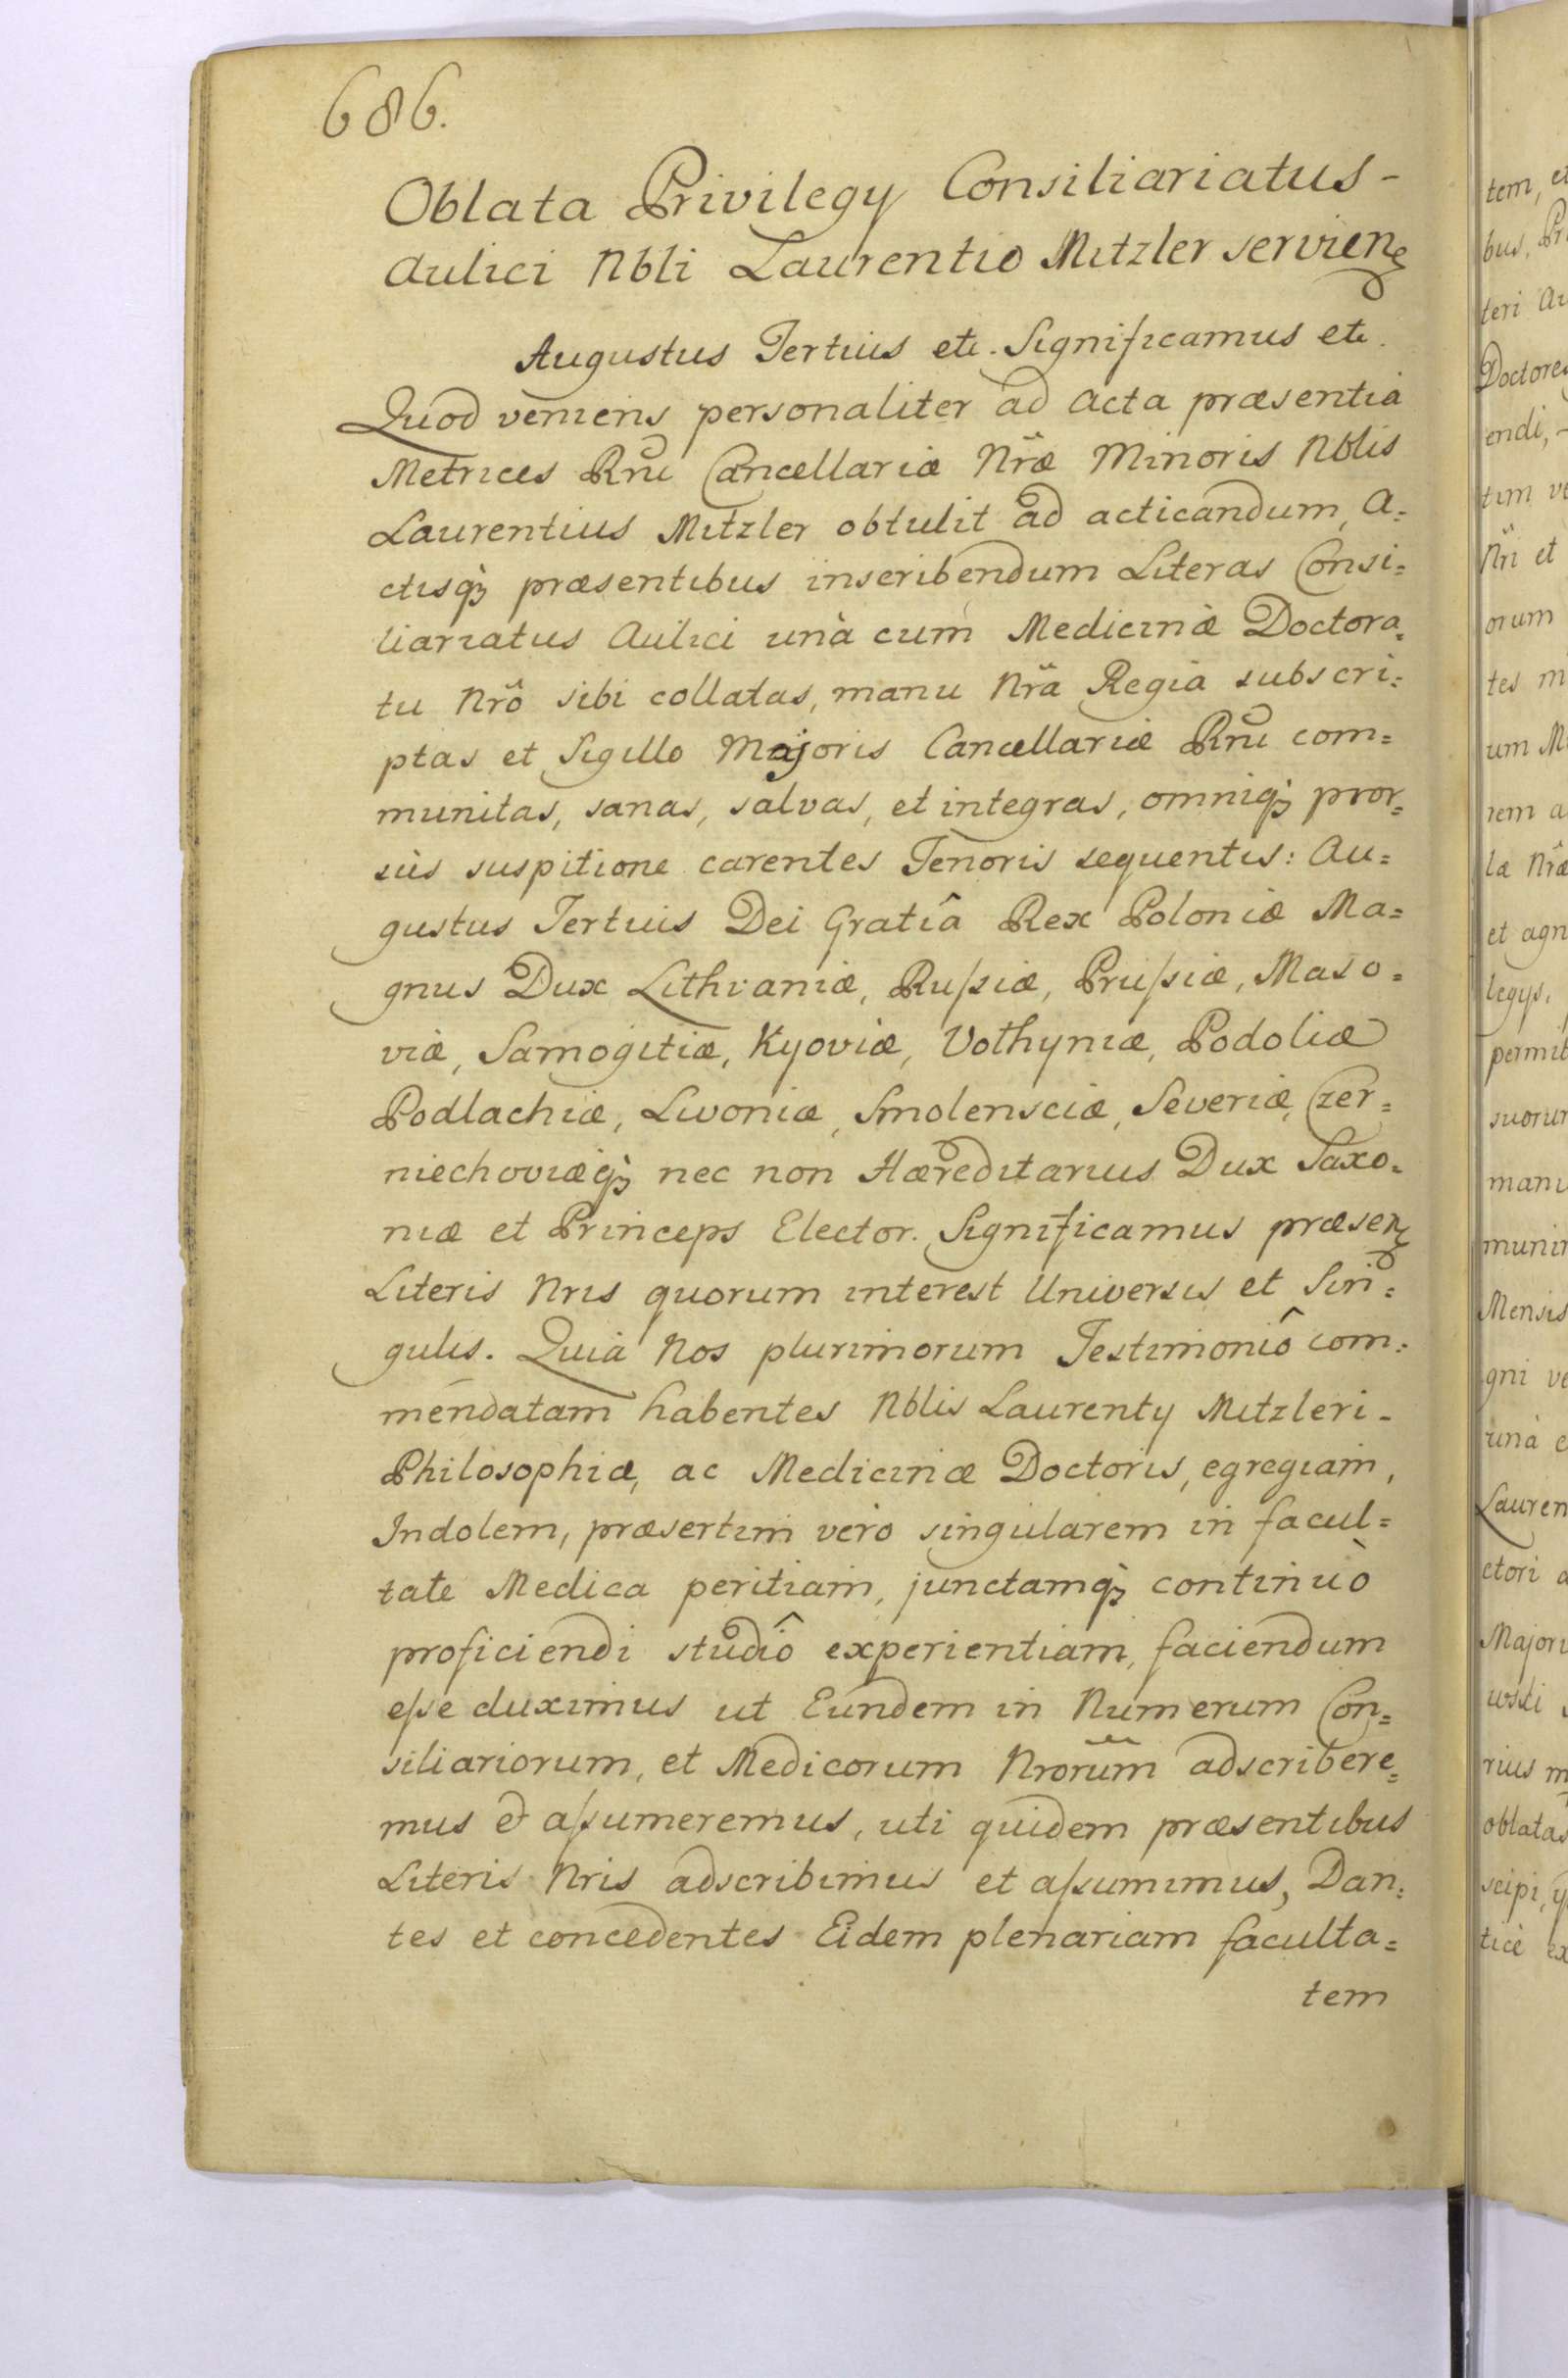 686.
Oblata Privilegy Consiliariatus -
Aulici Nbli Laurentio Mitzler servien
Augustus Tertius etc. Significamus etc.
Quod veniens personaliter ad Acta præsentia
Metrices Rni Cancellariæ Nræ Minoris Nblis
Laurentius Mitzler obtulit ad acticandum, A=
ctisq; præsentibus inscribendum Literas Consi=
liariatus Aulici unà cum Medicinæ Doctora=
tu Nrô sibi collatas, manu Nrâ Regia subscri=
ptas et Sigillo Majoris Cancellariæ Rni com=
munitas, sanas, salvas, et integras, omniq; pror=
sùs suspitione carentes Tenoris sequentis: Au=
gustus Tertius Dei Gratiâ Rex Poloniæ Ma=
gnus Dux Lithvaniæ, Rußiæ, Prußiæ, Maso=
viæ, Samogitiæ, Kyoviæ, Volhyniæ, Podoliæ
Podlachiæ, Livoniæ, Smolensciæ, Severiæ, Czer=
niechoviæq; nec non Hæreditarius Dux Saxo=
niæ et Princeps Elector. Significamus præsen
Literis Nris quorum interest Universis et Sin=
gulis. Quia Nos plurimorum Testimoniô com=
mendatam habentes Nblis Laurenty Mitzleri -
Philosophiæ, ac Medicinæ Doctoris, egregiam,
Indolem, præsertim vero singularem in facul=
tate Medica peritiam, junctamq; continuò
proficiendi studiô experientiam, faciendum
eße duximus ut Eundem in Numerum Con=
siliariorum, et Medicorum Nrorum adscribere=
mus & aßumeremus, uti quidem præsentibus
Literis Nris adscribimus et aßumimus, Dan=
tes et concedentes Eidem plenariam faculta=
tem
tem, et
bus, Pr
teri Au
Doctores
endi, -
tim ve
Nri et
orum
tes m
um M
rem a
la Nræ
et agn
legys,
permit
suorum
manu
munir
Mensis
gni ve
unà c
Lauren
ctori a
Majori
wski
rius m
oblatas
scipi, y
ticè ex